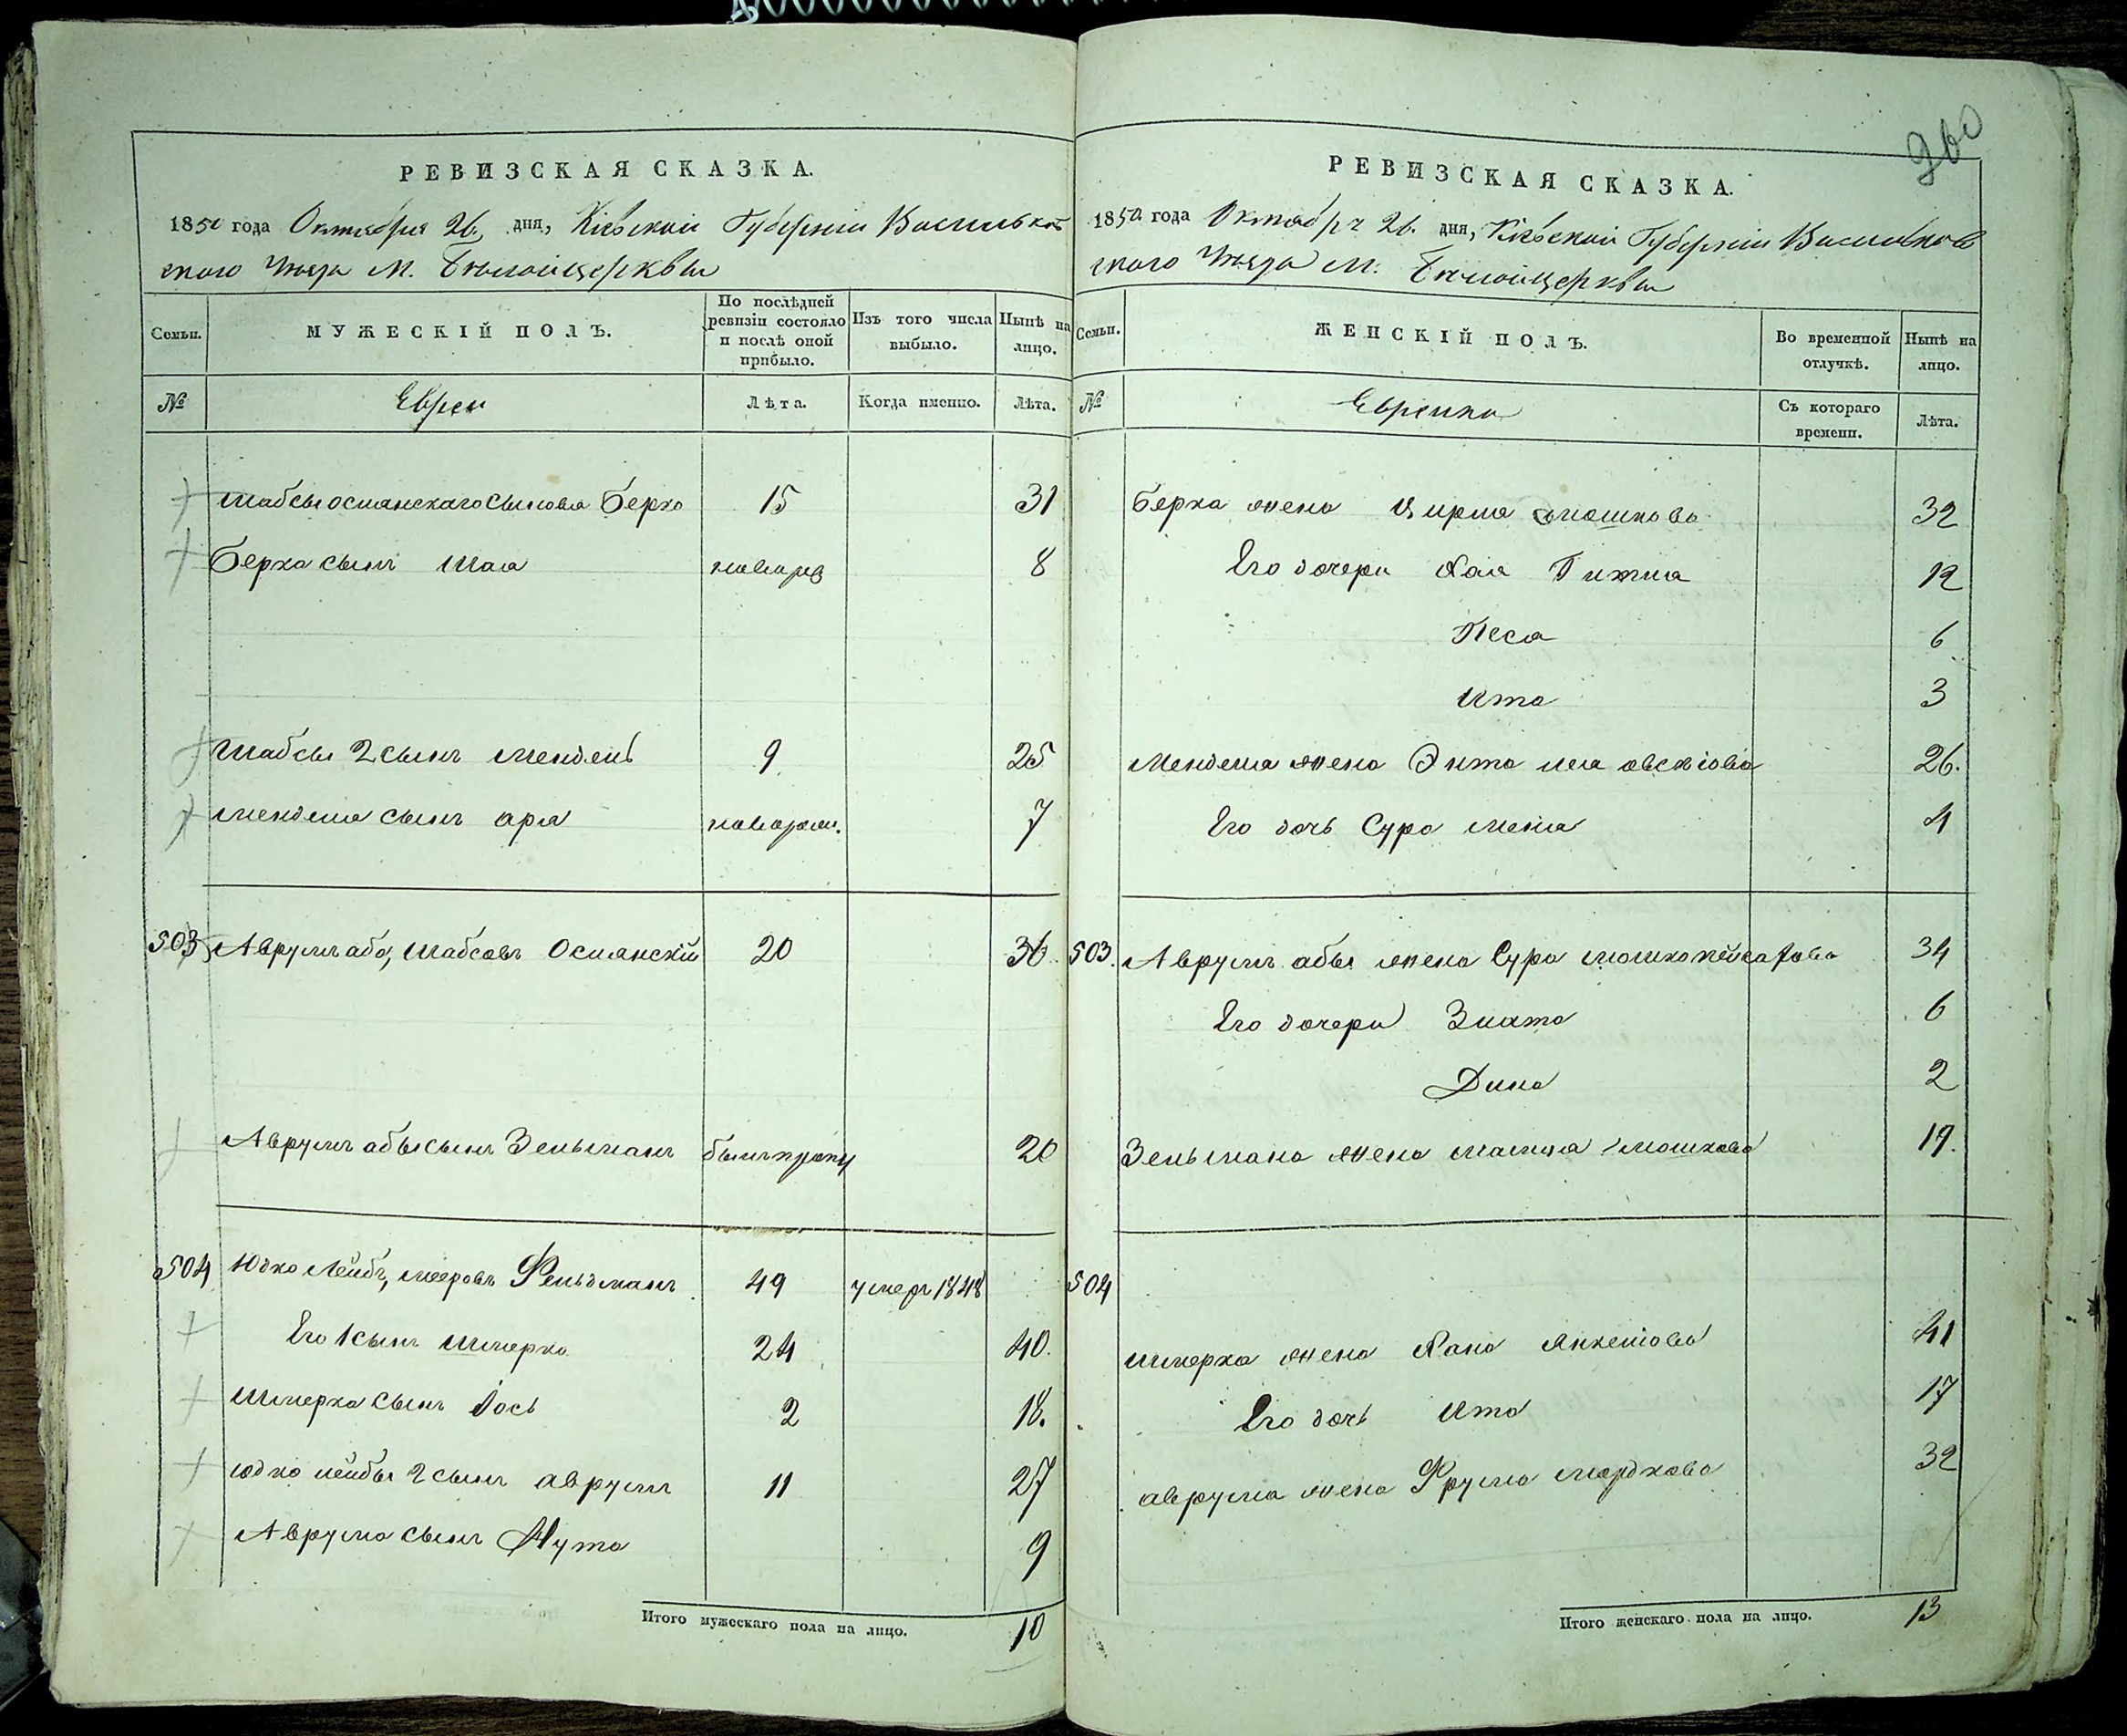 960
РЕВИЗСКАЯ СКАЗКА.
1850 года Октября 26 дня, Кіевской Губерніи Васильков
скаго Уезда М. Белойцерквы
Семьи.
МУЖЕСКІЙ ПОЛЪ.
По послѣдней ревизіи состояло и послѣ оной прибыло.
Изъ того числа выбыло.
Нынѣ на лицо.
№
Евреи
Лѣта.
Когда именно.
Лѣта.
Шабсы Ослянскаго сыновья Берко 15 31
Берка сынъ Шая новорож 8
Шабсы 2 сынъ Мендель 9 25
Менделя сынъ Аря новорож. 7
503 Аврумъ аба, Шабсовъ Ослянскій 20 36
Аврумъ абы сынъ Зельманъ былъ пропу 20
504 Юдко Лейбъ, Мееровъ Фельдманъ 49 умеръ 1848
Его 1 сынъ Шмерко 24 40.
Шмерка сынъ Іось 2 18.
Юдко лейбы 2 сынъ аврумъ 11 27
Аврума сынъ Нута 9
Итого мужескаго пола на лицо. 10
РЕВИЗСКАЯ СКАЗКА.
1850 года Октября 26. дня, Кіевской Губерніи Васильков
скаго Уезда М. Белойцерквы
Семьи.
ЖЕНСКІЙ ПОЛЪ.
Во временной отлучкѣ.
Нынѣ на лицо.
№
Еврейки
Съ котораго времени.
Лѣта.
Берка жена Цирля Мошкова 32
Его дочери Хая Гитля 12
Песя 6
Ита 3
Менделя жена Эита лея овсеіова 26.
Его дочь Сура меня 4
503. Аврумъ абы жена Сура мошко 34
Его дочери Злата 6
Дина 2
Зельмана жена малця мошкова 19.
504
Шмерка жена Хана Янкелова 41
Его дочь Ита 17
аврума жена Фрума мордкова 32
Итого женскаго пола на лицо. 13